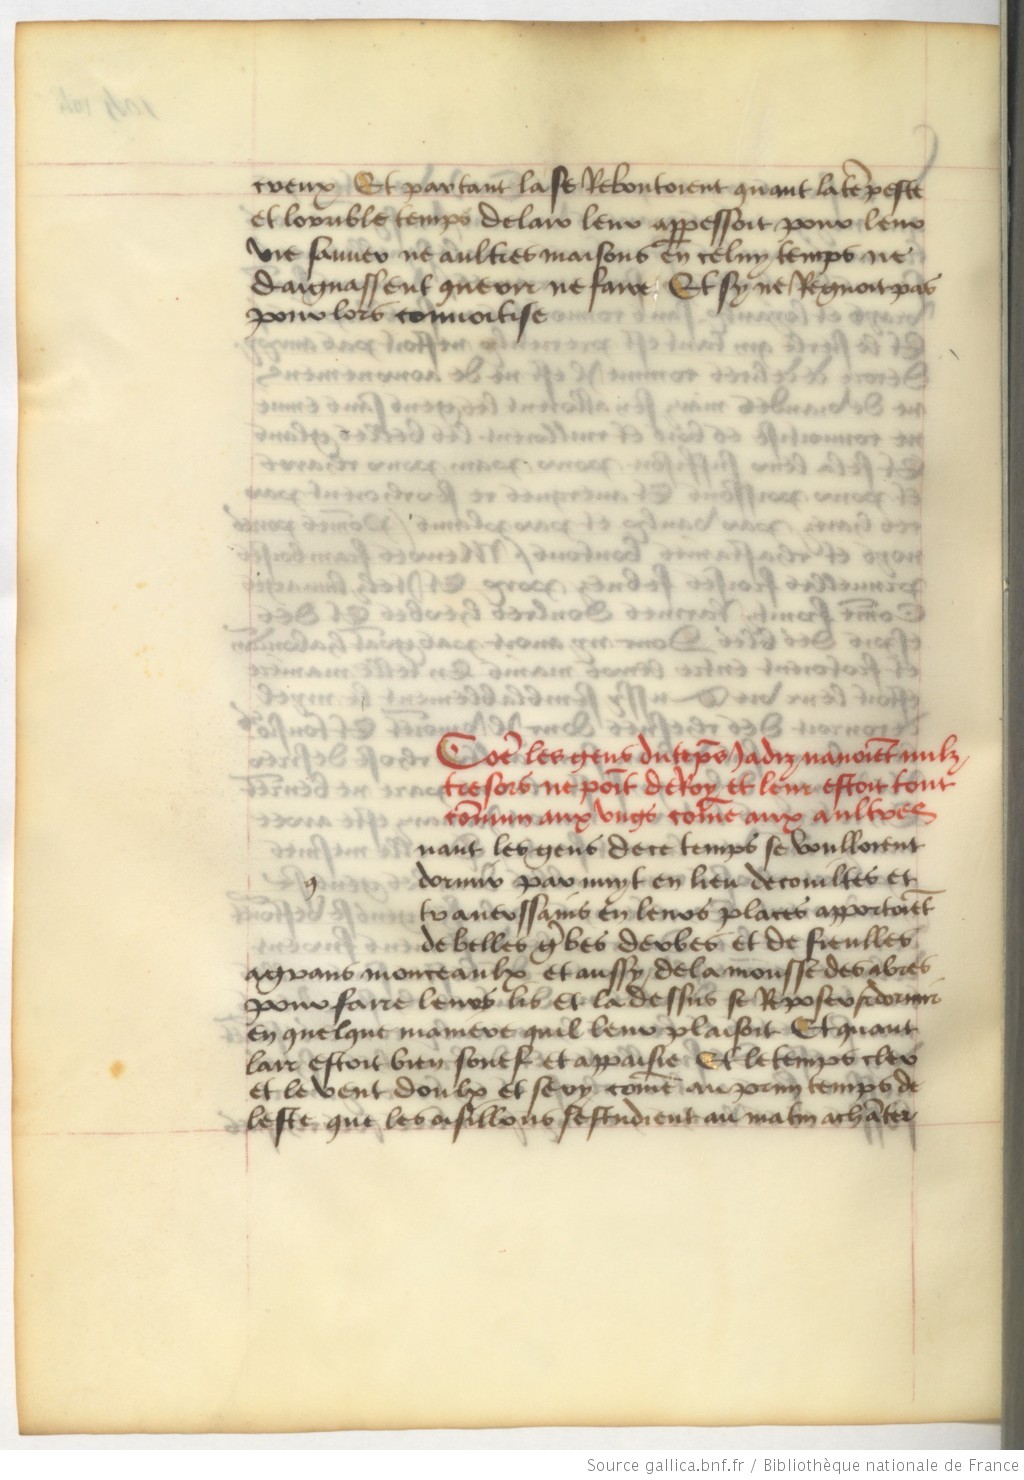 creux Et par tant la se Rebontoient quant la te̅peste
et lorrible temps de lair leur appessoit pour leur
vie sauver ne aultres maisons en celuy temps ne
daignassent querir ne faire Et sy ne Regnoit pas
pour lors couuoitise
Co̅e̅ les gens du te̅ps Jadiz nauoie̅t nulz
tresors ne poi̅t de Roy et leur estoit tout
co̅mun aux vngs co̅me aux aultres
uant les gens de ce temps se voulloient
q
dormir par nuyt en lieu de couiltes et
trauerssains en leurs places apportoie̅t
de belles g̅bes derbes et de fieulles
a grans monceaulx et aussy de la mousse des abres
pour faire leurs lis et la dessus se Reposer & dormir
en quelque maniere quil leur plaisoit Et quant
lair estoit bien souef et appaisie Et le temps cler
et le vent doulx et sery co̅me au prim temps de
leste que les oisillons sestudient au matin a cha̅ter
Source gallica.bnf.fr / Bibliothèque nationale de France